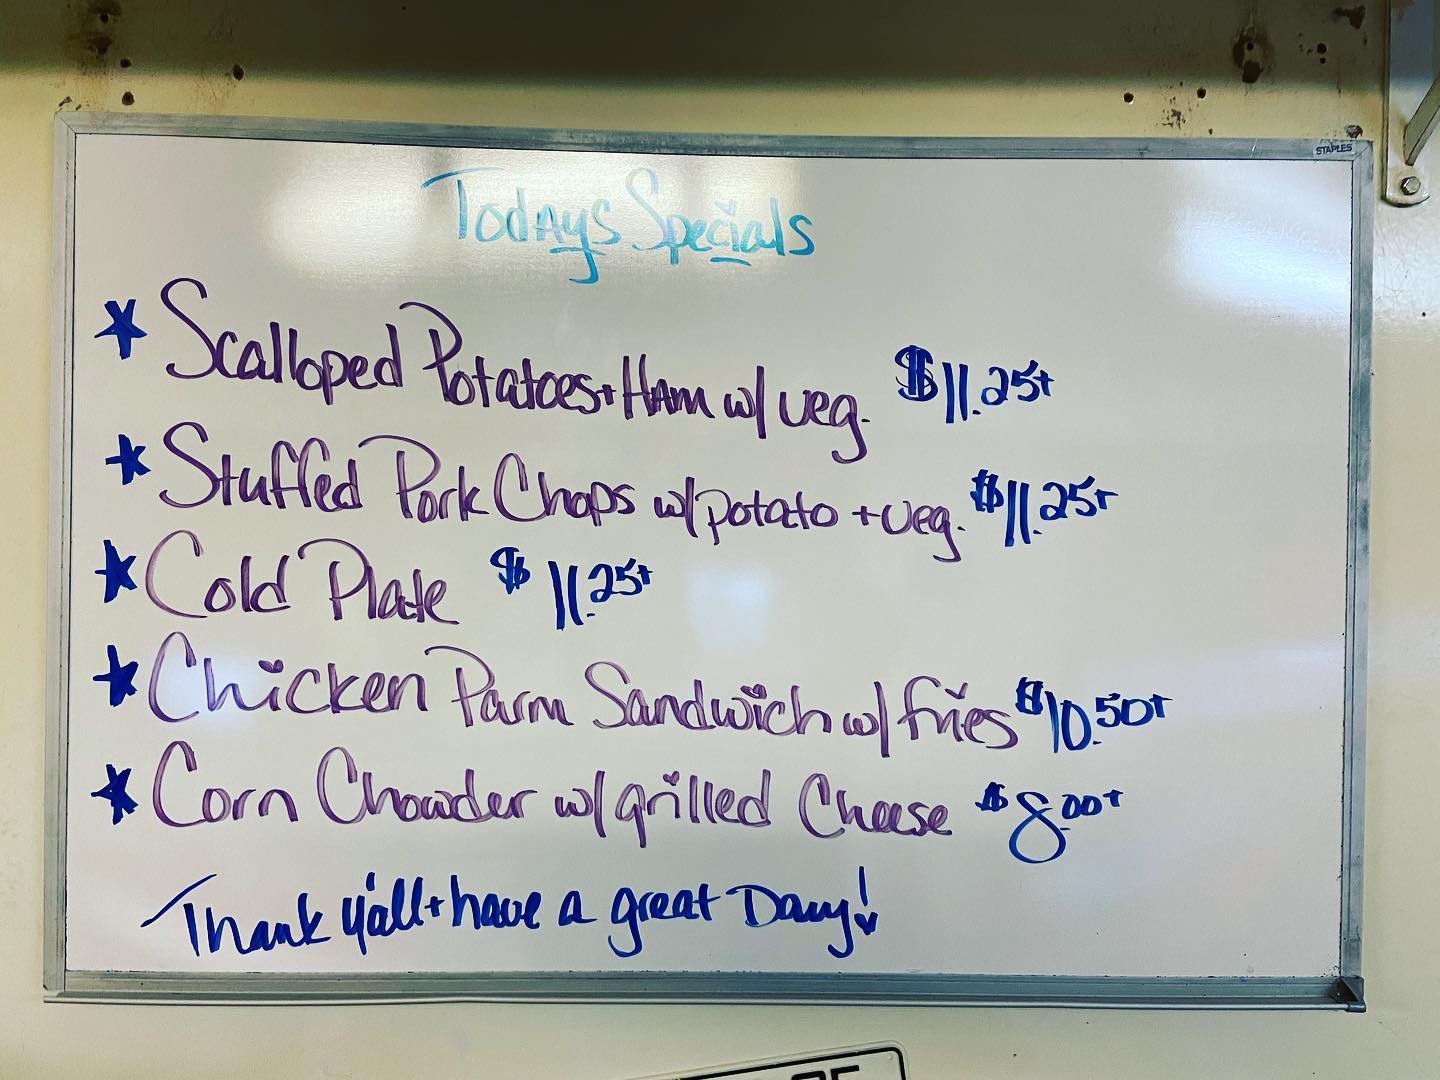 STAPLES
Todays Specials
Scalloped Potatoes + Ham w/ veg. $11.25+
Stuffed Pork Chops w/ potato + veg. $11.25+
Cold Plate $11.25+
Chicken Parm Sandwich w/ fries $10.50+
Corn Chowder w/ grilled Cheese $8.00+
Thank y'all + have a great Day!